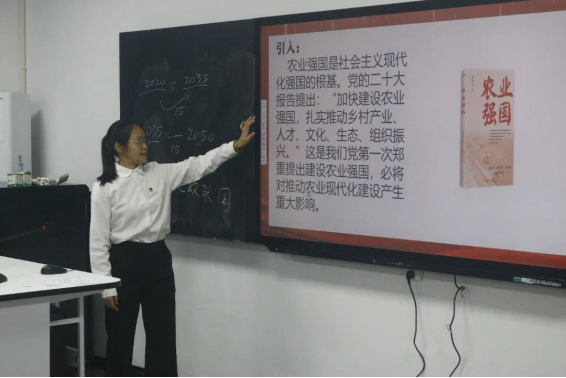 2020 - 2035
15
2035 - 2050
15
引入：
农业强国是社会主义现代
化强国的根基。党的二十大
报告提出：“加快建设农业
强国，扎实推动乡村产业、
人才、文化、生态、组织振
兴。”这是我们党第一次郑
重提出建设农业强国，必将
对推动农业现代化建设产生
重大影响。
农业
强国